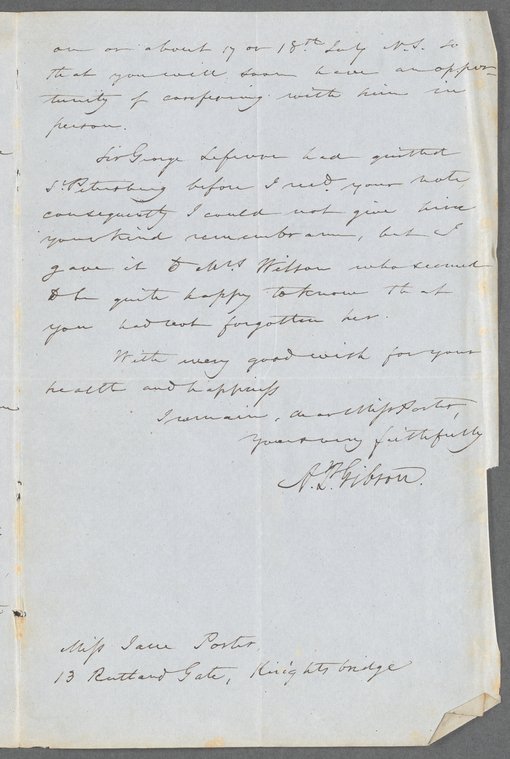 on or about 17 or 18th July N.S. so
that you will soon have an oppor-
tunity of conferring with him in
person.
Sir George Lefevre had quitted
St. Petersburg before I recd. your note
consequently I could not give him
your kind remembrance, but I
gave it to Mrs. Wilson who seemed
to be quite happy to know that
you had not forgotten her.
With every good wish for your
health and happiness
I remain, dear Miss Porter,
yours very faithfully
Gibson.
Miss Jane Porter
13 Rutland Gate, Knightsbridge